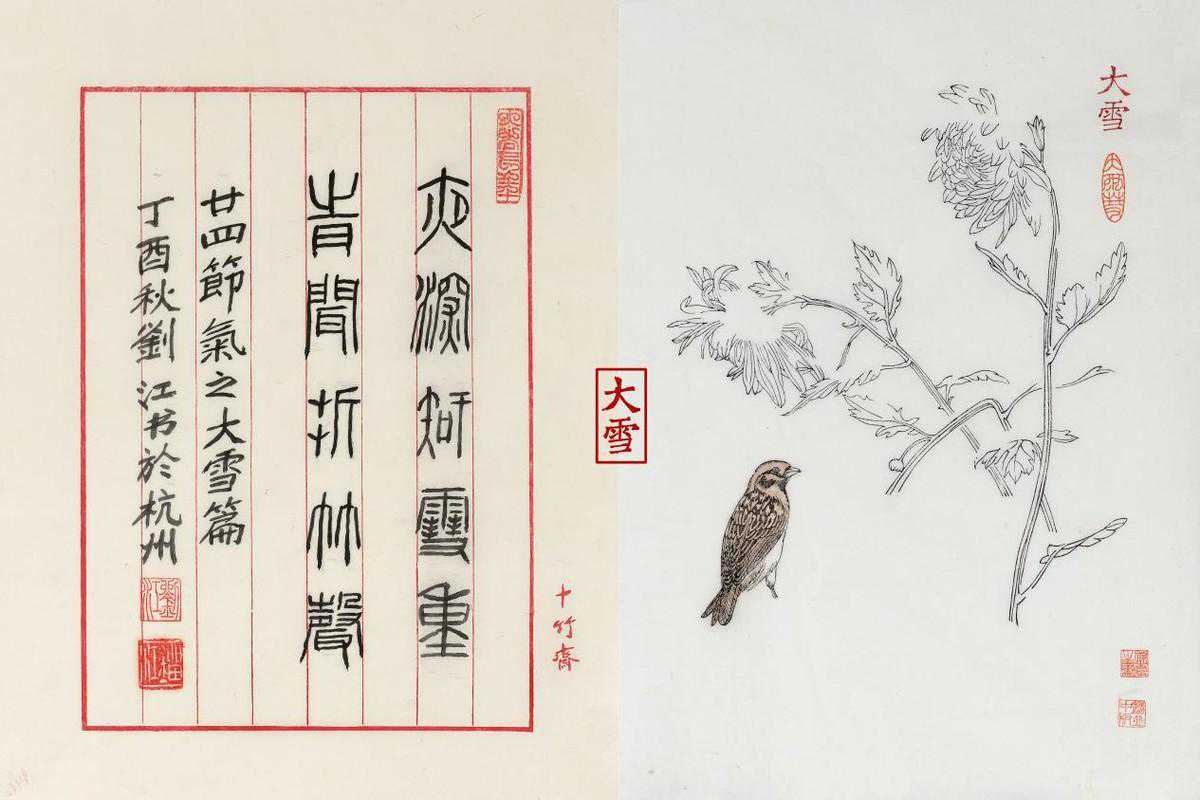 夜深知雪重
旹聞折竹聲
廿四節氣之大雪篇
丁酉秋劉江书於杭州
劉江
十竹齋
大雪
大雪